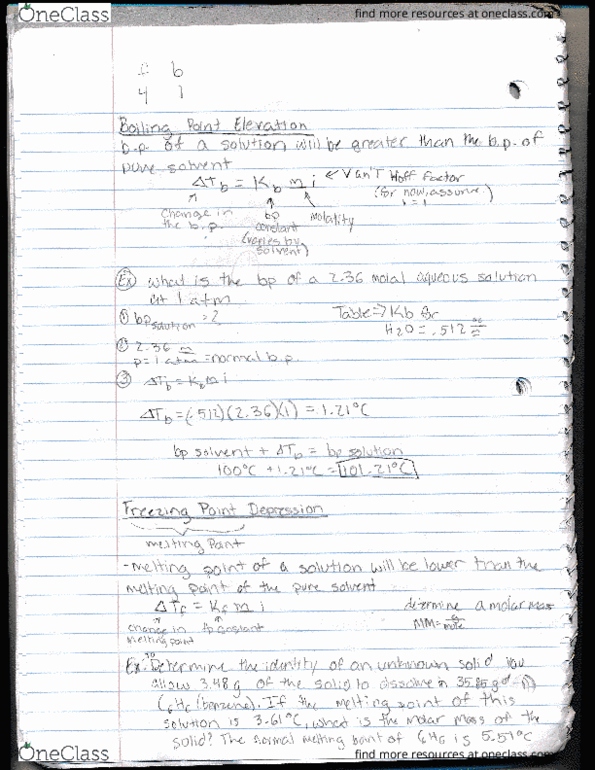 OneClass
find more resources at oneclass.com
b
4 1
Boiling Point Elevation
b.p. of a solution will be greater than the b.p. of
pure solvent
ΔTb = Kb m i ← Van'T Hoff Factor
(for now, assume i = 1)
change in the b.p.
bp constant (varies by solvent)
molality
Ex what is the bp of a 2.36 molal aqueous solution
at 1 atm
① bp solution = ?
Table → Kb for
H2O = .512 °C/m
② 2.36 m
p = 1 atm = normal b.p.
③ ΔTb = Kb m i
ΔTb = (.512)(2.36)(1) = 1.21°C
bp solvent + ΔTb = bp solution
100°C + 1.21°C = 101.21°C
Freezing Point Depression
melting Point
-melting point of a solution will be lower than the
melting point of the pure solvent
ΔTf = Kf m i
determine a molar mass
change in melting point
fp constant
MM = g/mole
Ex: Determine the identity of an unknown solid you
allow 3.48 g of the solid to dissolve in 35.85 g of
C6H6 (benzene). If the melting point of this
solution is 3.61°C, what is the molar mass of the
solid? The normal melting point of C6H6 is 5.51°C
OneClass
find more resources at oneclass.com